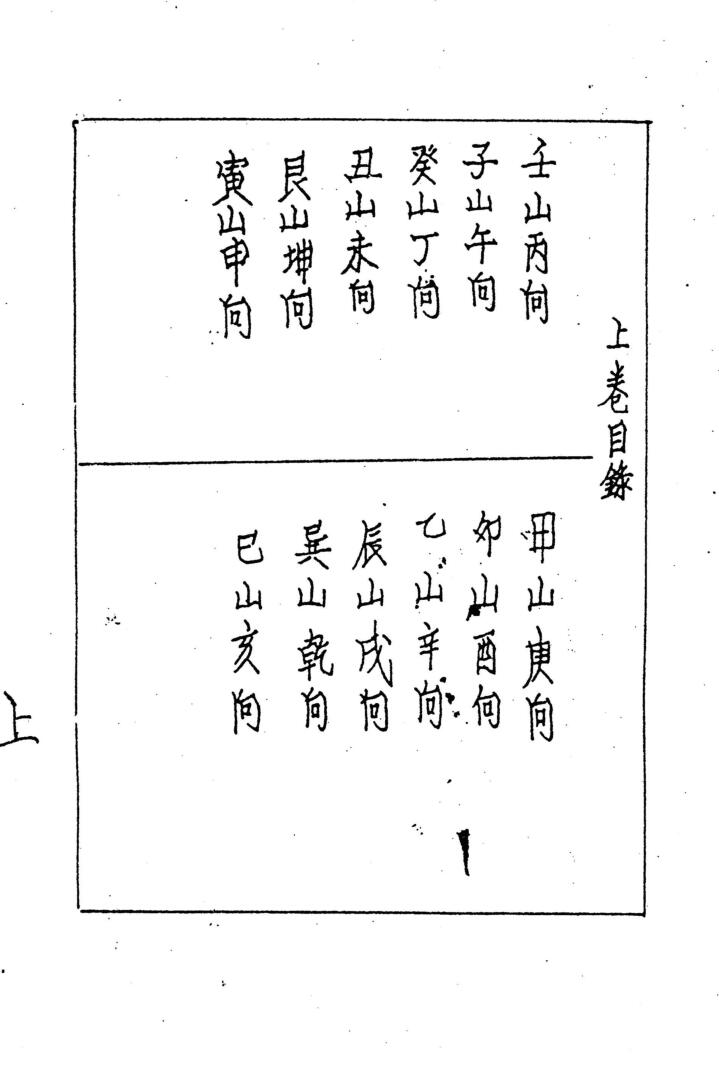 上卷目錄
壬山丙向
子山午向
癸山丁向
丑山未向
艮山坤向
寅山申向
甲山庚向
卯山酉向
乙山辛向
辰山戌向
巽山乾向
巳山亥向
上